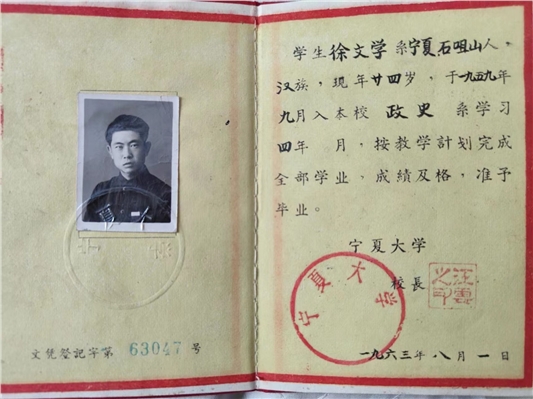 文凭登记字第 63047 号
学生徐文学系宁夏石咀山人，
汉族，现年廿四岁，于一九五九年
九月入本校 政史 系学习
四年 月，按教学計划完成
全部学业，成绩及格，准予
毕业。
宁夏大学
校長
宁夏大学
一九六三年八月一日